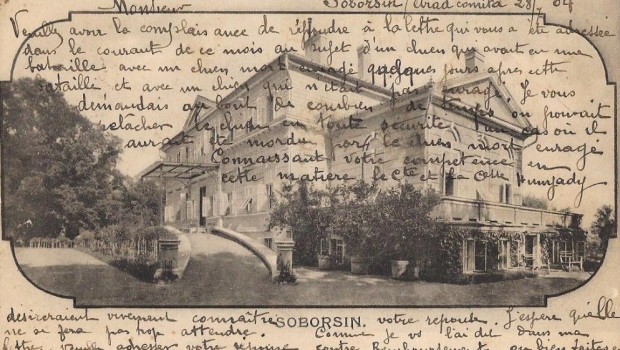 Monsieur Soborsin / Arad comita 28/7 04
Veuillez avoir la complaisance de répondre à la lettre qui vous a été adressée
dans le courant de ce mois au sujet d'un chien qui avait eu une
bataille avec un chien mort enragé quelques jours après cette
bataille et avec un chien qui n'était pas enragé. Je vous
demandais au bout de combien de temps on pouvait
relâcher le chien en toute sécurité, au cas où il
aurait été mordu par le chien mort enragé
Connaissant votre compétence en
cette matière le Cte et la Ctesse Hunyady
désireraient vivement connaître votre réponse. J'espère qu'elle
ne se fera pas trop attendre. Comme je vous l'ai dit dans ma
lettre, veuillez adresser votre réponse contre Remboursement ou bien faites
SOBORSIN.